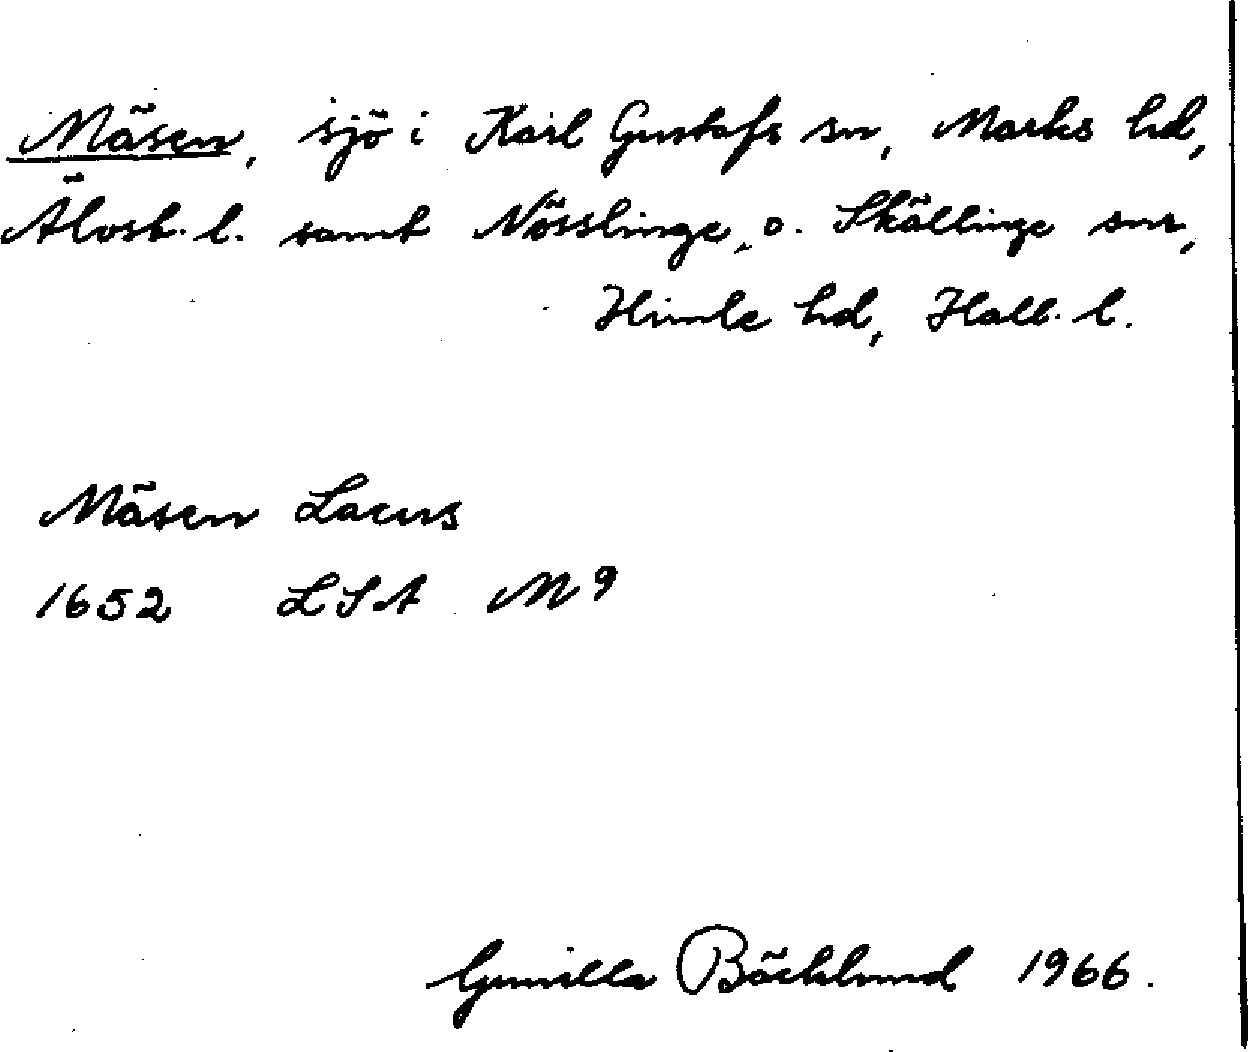 Mäsen, sjö i Karl Gustafs sn, Marks hd,
Älvsb. l. samt Nösslinge, o. Skällinge snr,
Himle hd, Hall. l.
Mäsen Lacus
1652 LSA M 9
Gunilla Bäcklund 1966.